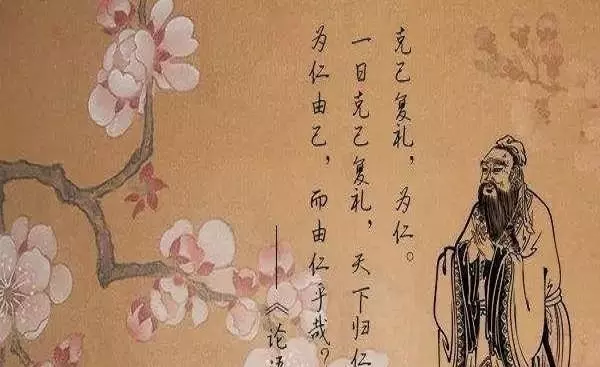 克己复礼，为仁。
一日克己复礼，天下归仁
为仁由己，而由仁乎哉？
——《论语